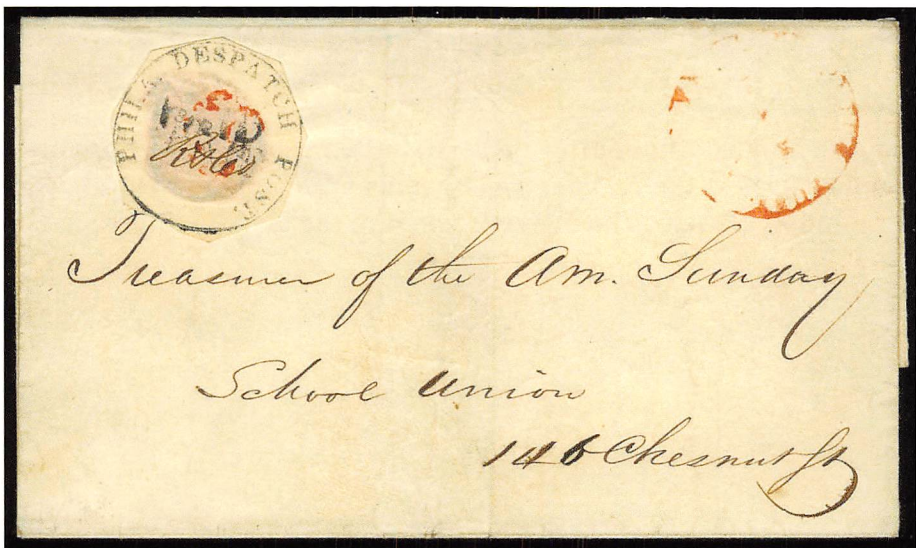 PHILA DESPATCH POST.
PAID
Treasurer of the Am. Sunday
School Union
146 Chesnut St